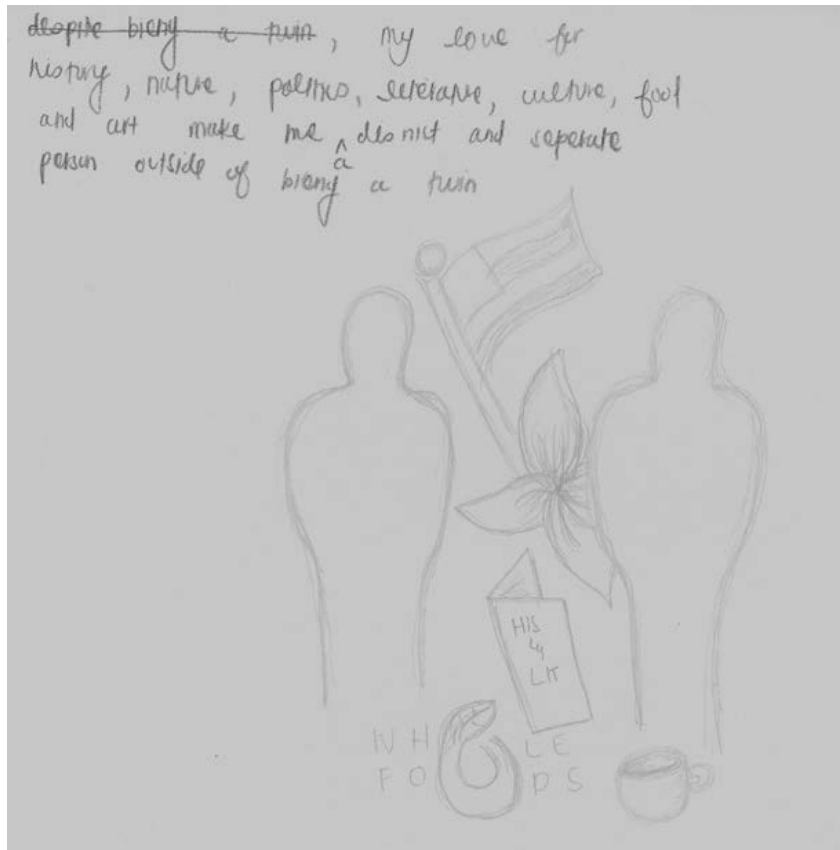 despite bieng a twin, my love for
history, nature, politics, literature, culture, food
and art make me a distnict and seperate
person outside of bieng a twin
HIS
4
LIT
WHOLE
FOODS